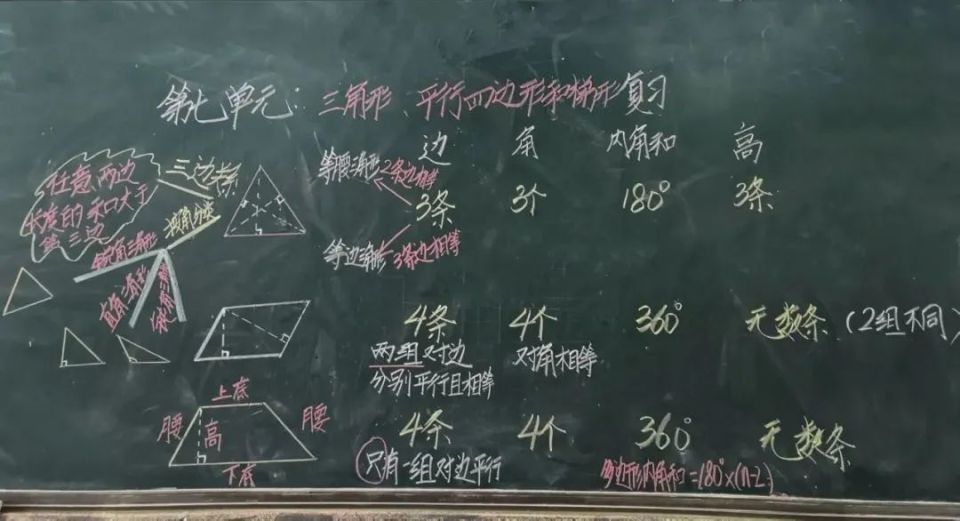 第七单元:三角形、平行四边形和梯形复习
边 角 内角和 高
任意两边
长度的和大于
第三边
三边关系
按角分类
锐角三角形
直角三角形
钝角三角形
等腰三角形 2条边相等
3条 3个 180° 3条
等边三角形 3条边相等
4条 4个 360° 无数条(2组不同)
两组对边 对角相等
分别平行且相等
上底
腰 高 腰
下底
4条 4个 360° 无数条
只有一组对边平行
多边形内角和=180°×(n-2)